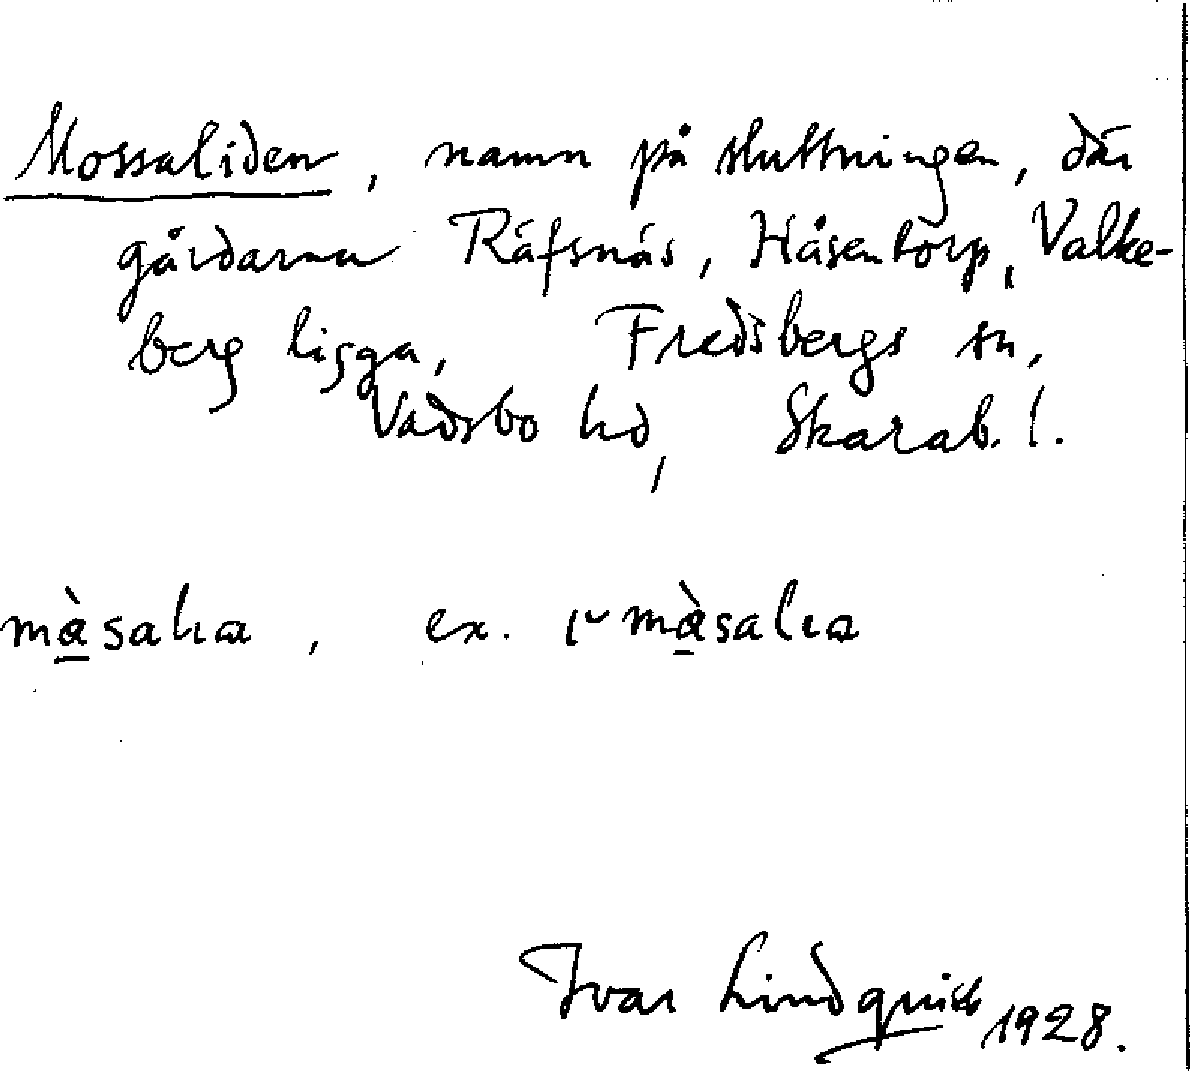 Mossaliden, namn på sluttningen, där
gårdarna Räfsnäs, Håsentorp, Valke-
berg ligga, Fredsbergs sn,
Vadsbo hd, Skarab. l.
màsalıa, ex. màsalıa
Ivar Lindquist 1928.